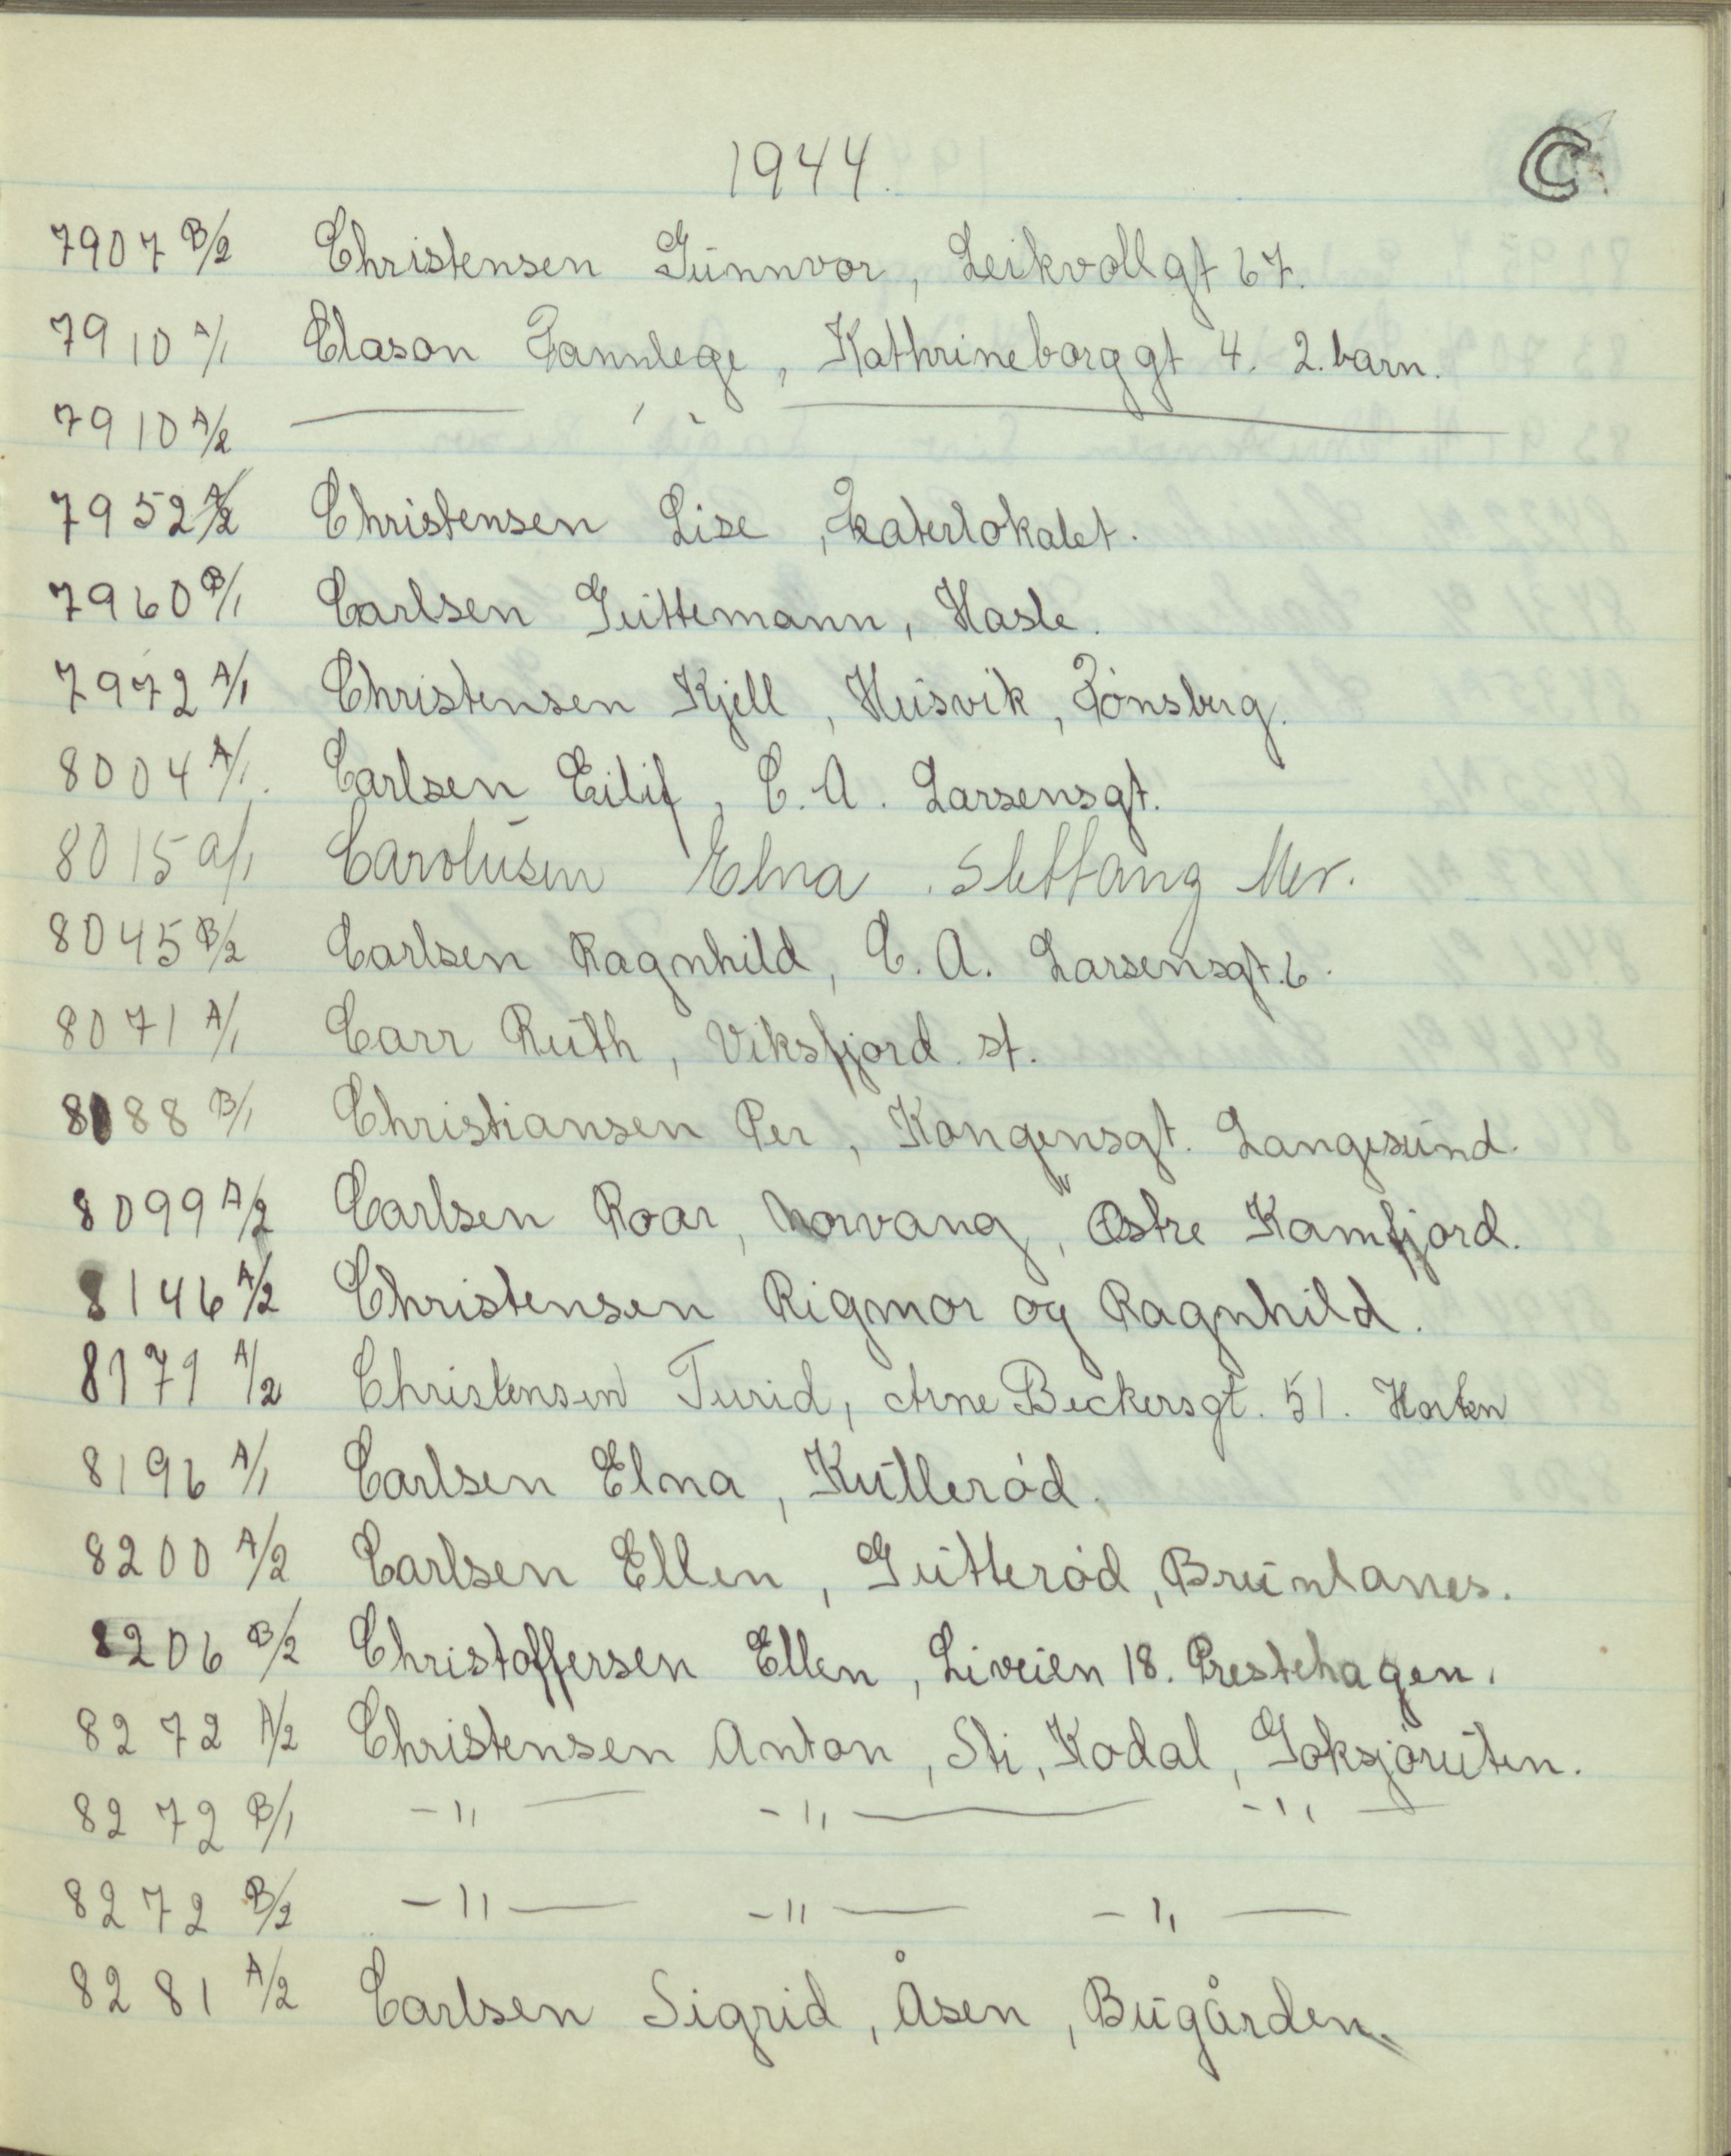 1944.
C
7907 B/2 Christensen Gunnvor, Leikvollgt 67.
7910 A/1 Clason Tannlege, Kathrineborggt 4. 2. barn.
7910 A/2 — " —
7952 A/2 Christensen Lise, Teaterlokalet.
7960 B/1 Carlsen Guttemann, Hasle.
7972 A/1 Christensen Kjell, Husvik, Tønsberg.
8004 A/1. Carlsen Eilif, C. A. Larsensgt.
8015 a/1 Carolusen Elna. Slettang Mer.
8045 B/2 Carlsen Ragnhild, C. A. Larsensgt. 6.
8071 A/1 Carr Ruth, Viksfjord st.
8088 B/1 Christiansen Per, Kongensgt. Langesund.
8099 A/2 Carlsen Roar, Norvang, Østre Kamfjord.
8146 A/2 Christensen Rigmor og Ragnhild.
8171 A/2 Christensen Turid, Arne Beckersgt. 51. Horten
8196 A/1 Carlsen Elna, Kutlerød.
8200 A/2 Carlsen Ellen, Gutterød, Brunlanes.
8206 B/2 Christoffersen Ellen, Liveien 18. Prestehagen.
8272 A/2 Christensen Anton, Sti, Kodal, Goksjøruten.
8272 B/1 -"- -"- -"-
8272 B/2 -"- -"- -"-
8281 A/2 Carlsen Sigrid, Åsen, Bugården.